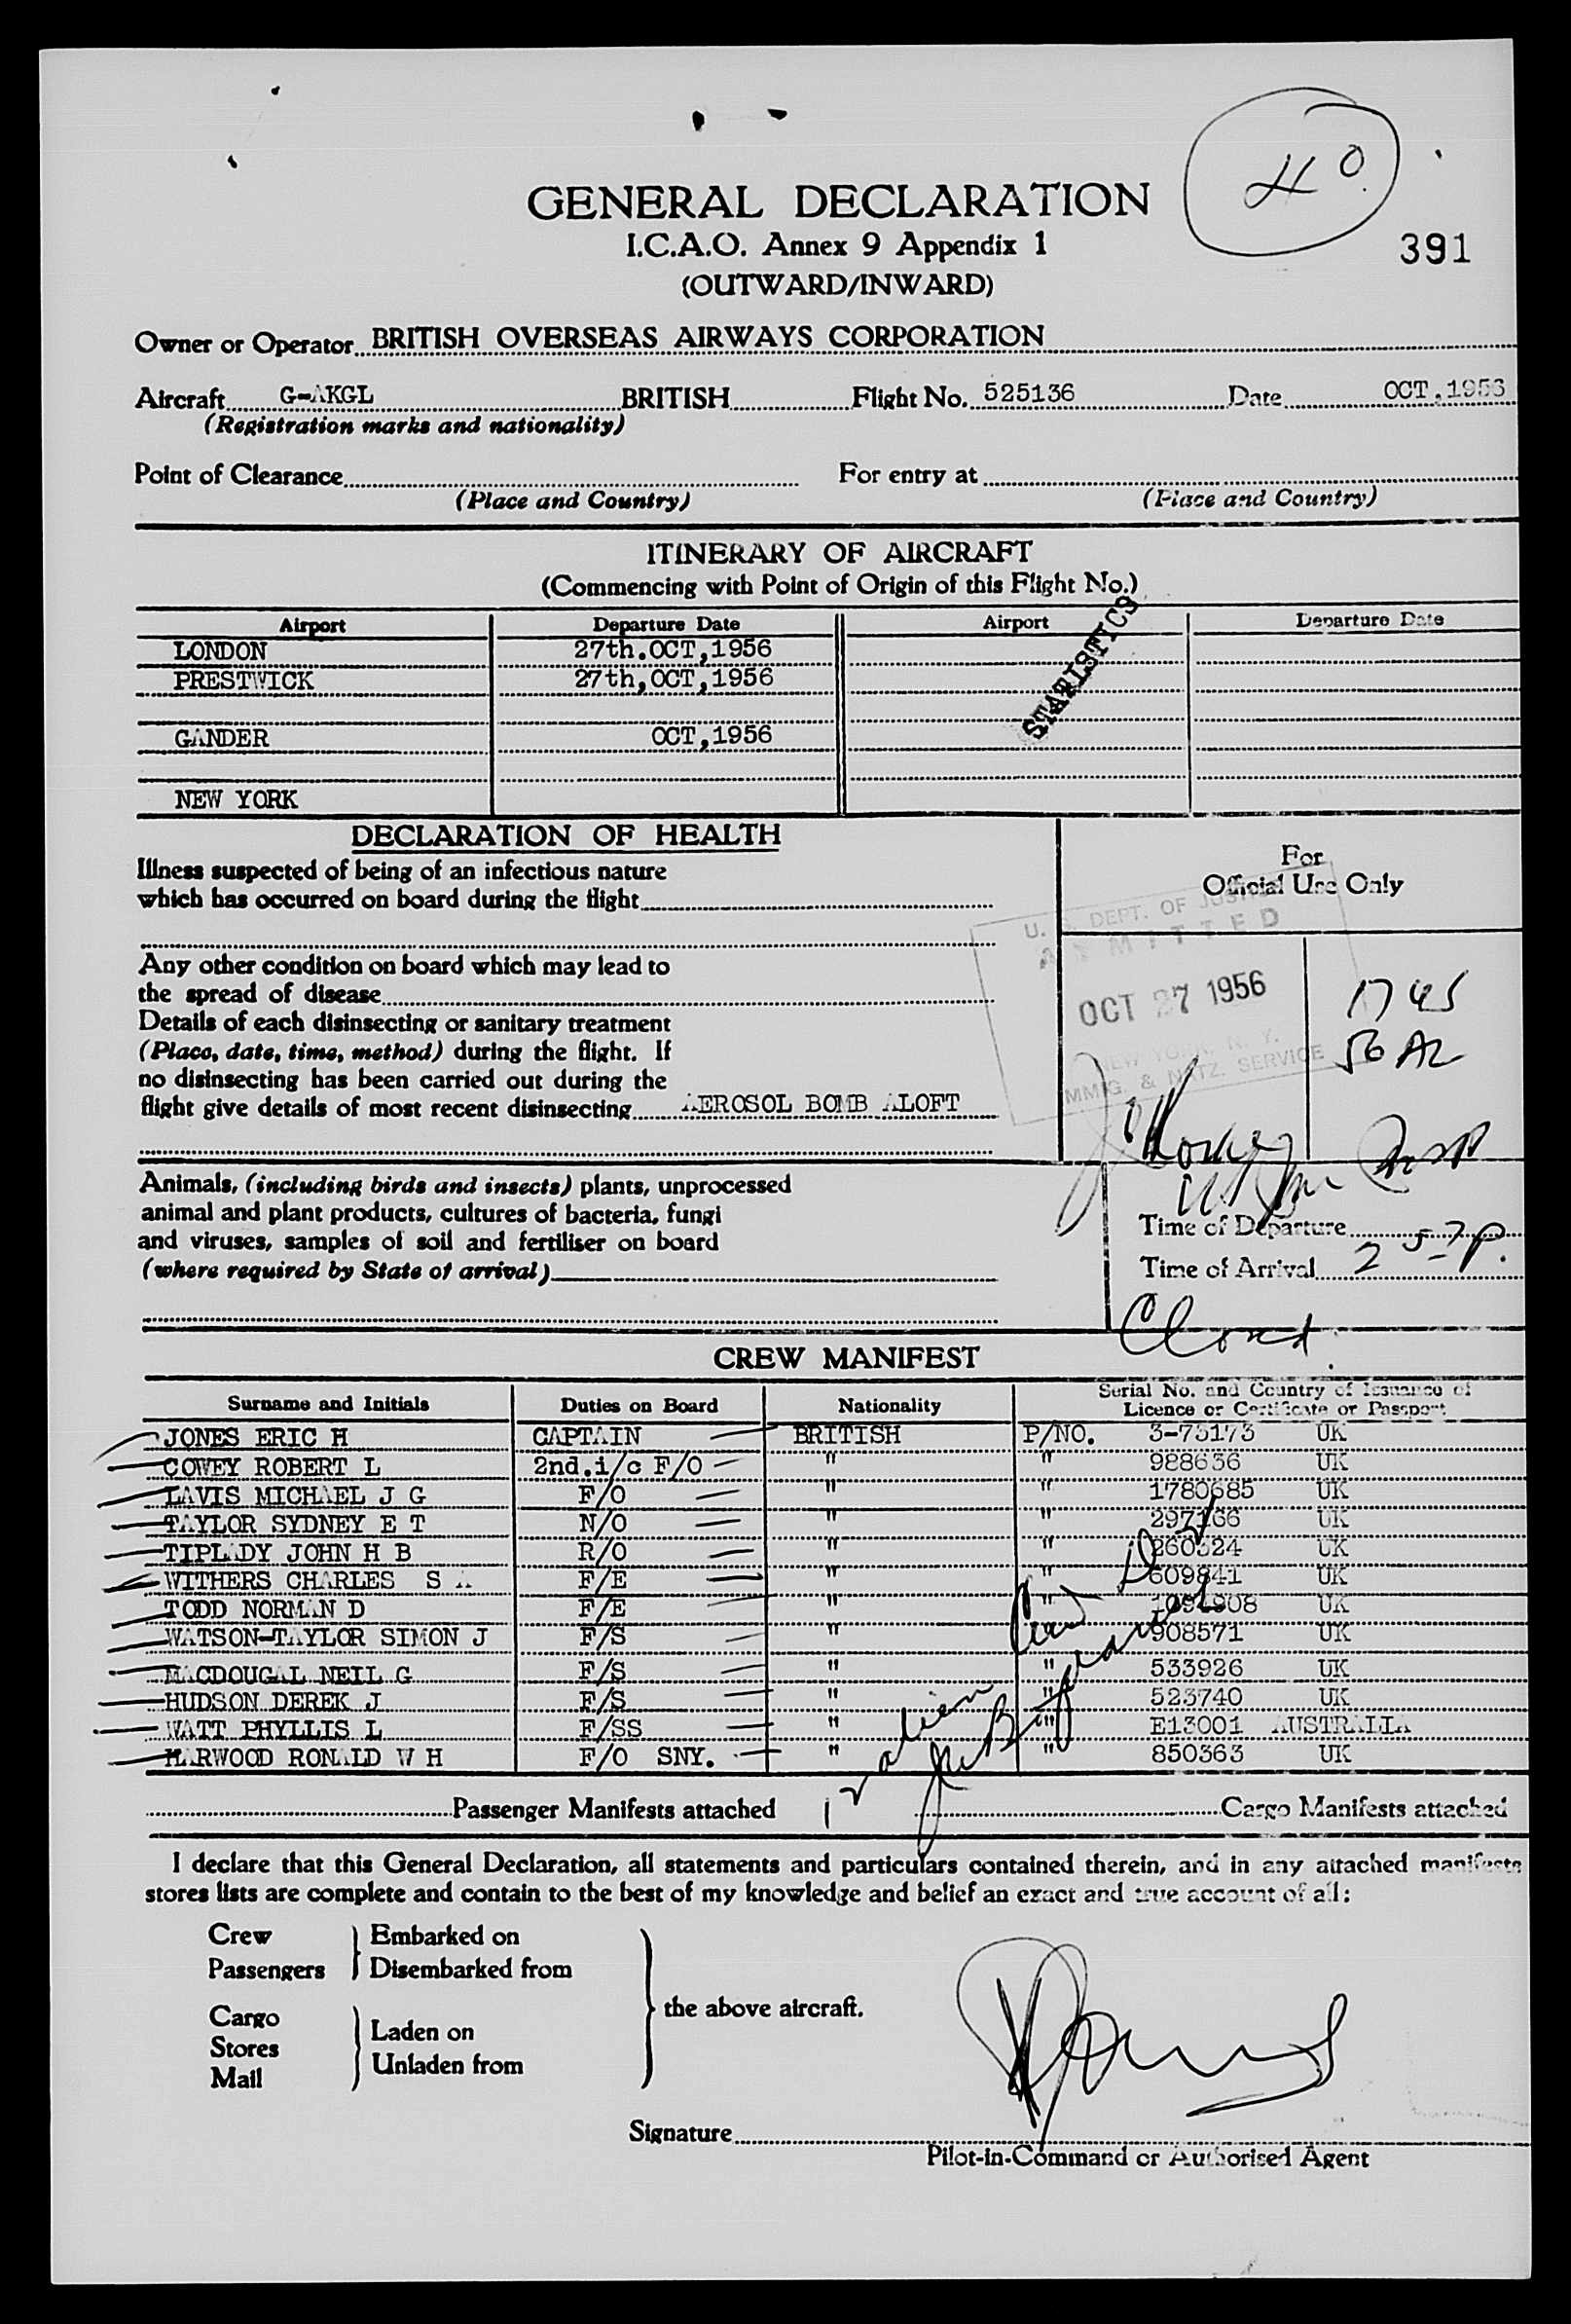 40
GENERAL DECLARATION
I.C.A.O. Annex 9 Appendix 1
391
(OUTWARD/INWARD)
Owner or Operator BRITISH OVERSEAS AIRWAYS CORPORATION
Aircraft G-AKGL BRITISH Flight No. 525136 Date OCT,1956
(Registration marks and nationality)
Point of Clearance For entry at
(Place and Country) (Place and Country)
ITINERARY OF AIRCRAFT
(Commencing with Point of Origin of this Flight No.)
STATISTICS
Airport Departure Date Airport Departure Date
LONDON 27th.OCT,1956
PRESTWICK 27th,OCT,1956
GANDER OCT,1956
NEW YORK
DECLARATION OF HEALTH
Illness suspected of being of an infectious nature
which has occurred on board during the flight
For
Official Use Only
U. S. DEPT. OF JUSTICE
ADMITTED
OCT 27 1956
NEW YORK, N. Y.
IMMIG. & NATZ. SERVICE
1745
Any other condition on board which may lead to
the spread of disease
Details of each disinsecting or sanitary treatment
(Place, date, time, method) during the flight. If
no disinsecting has been carried out during the
flight give details of most recent disinsecting AEROSOL BOMB ALOFT
Animals, (including birds and insects) plants, unprocessed
animal and plant products, cultures of bacteria, fungi
and viruses, samples of soil and fertiliser on board
(where required by State of arrival)
Time of Departure
Time of Arrival 2 57 P.
CREW MANIFEST
Surname and Initials Duties on Board Nationality Serial No. and Country of Issuance of
Licence or Certificate or Passport
JONES ERIC H CAPTAIN BRITISH P/NO. 3-73173 UK
COWEY ROBERT L 2nd.i/c F/O " " 988636 UK
LAVIS MICHAEL J G F/O " " 1780685 UK
TAYLOR SYDNEY E T N/O " " 297166 UK
TIPLADY JOHN H B R/O " " 260324 UK
WITHERS CHARLES S A F/E " " 609841 UK
TODD NORMAN D F/E " " 1094908 UK
WATSON-TAYLOR SIMON J F/S " " 908571 UK
MACDOUGAL NEIL G F/S " " 533926 UK
HUDSON DEREK J F/S " " 523740 UK
WATT PHYLLIS L F/SS " " E13001 AUSTRALIA
MARWOOD RONALD W H F/O SNY. " " 850363 UK
Passenger Manifests attached Cargo Manifests attached
I declare that this General Declaration, all statements and particulars contained therein, and in any attached manifests
stores lists are complete and contain to the best of my knowledge and belief an exact and true account of all:
Crew Embarked on
Passengers Disembarked from
the above aircraft.
Cargo Laden on
Stores Unladen from
Mail
Signature
Pilot-in-Command or Authorised Agent